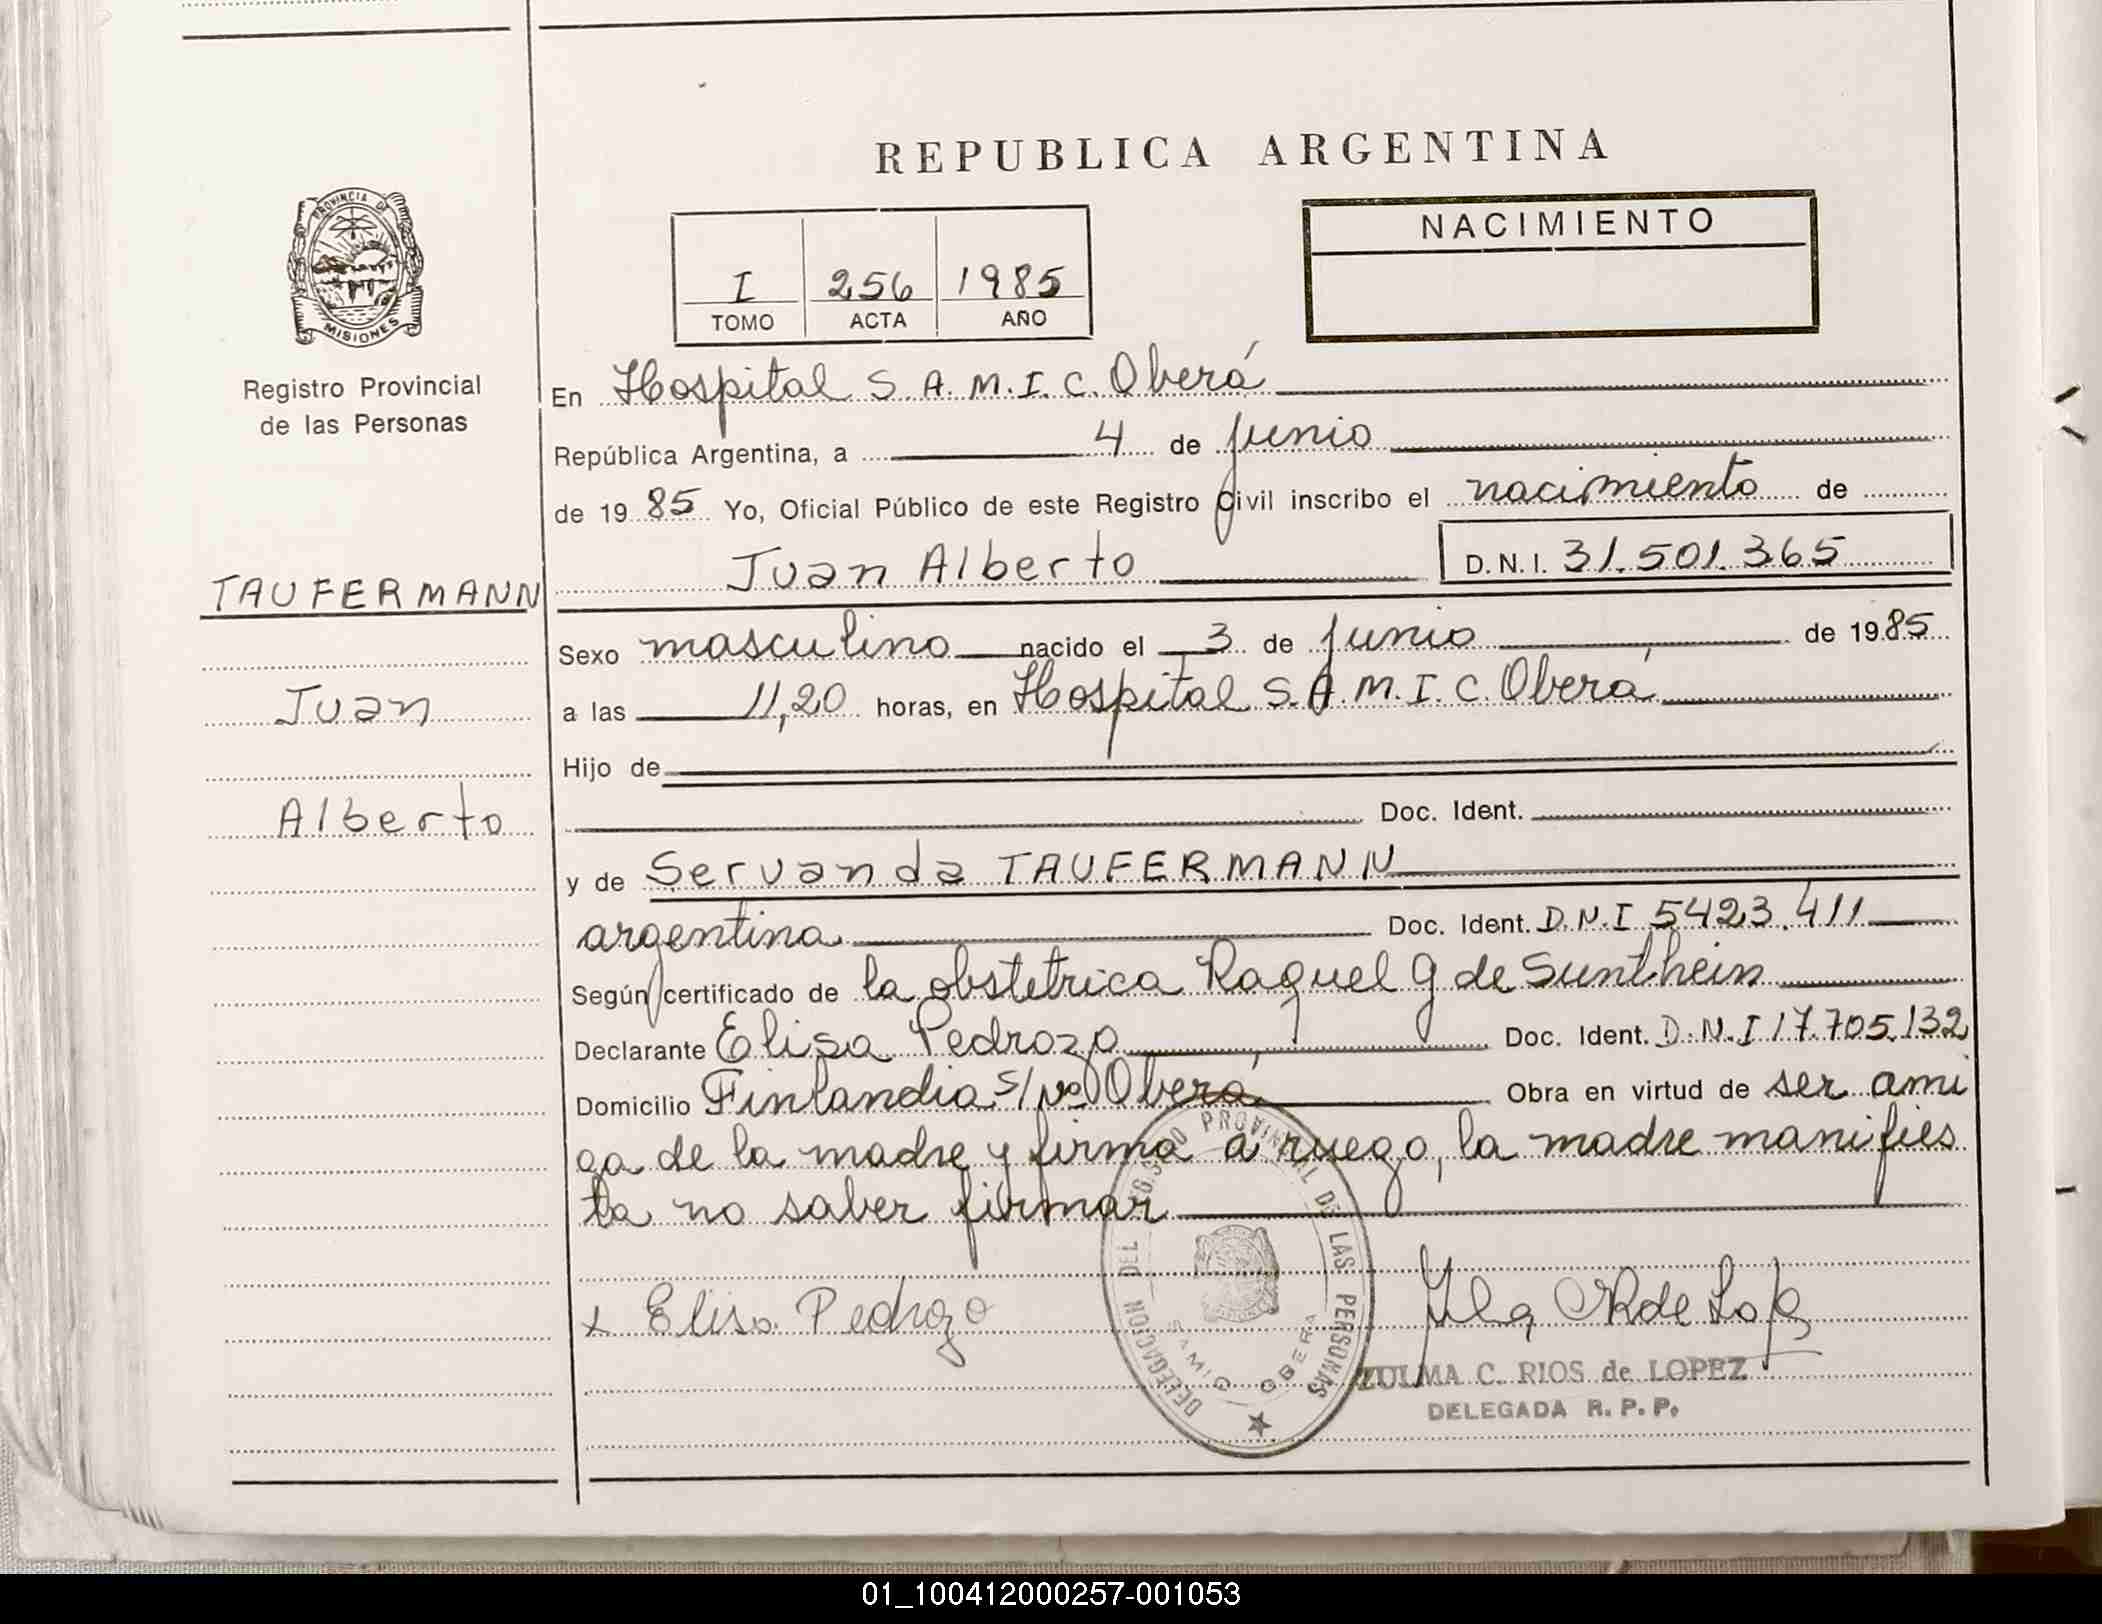 REPUBLICA ARGENTINA
PROVINCIA DE
MISIONES
Registro Provincial
de las Personas
I 256 1985
TOMO ACTA AÑO
NACIMIENTO
En Hospital S.A.M.I.C. Oberá
República Argentina, a 4 de junio
de 1985 Yo, Oficial Público de este Registro Civil inscribo el nacimiento de
Juan Alberto D.N.I. 31.501.365
TAUFERMANN
Juan
Alberto
Sexo masculino nacido el 3 de junio de 1985
a las 11,20 horas, en Hospital S.A.M.I.C. Oberá
Hijo de
Doc. Ident.
y de Servanda TAUFERMANN
argentina Doc. Ident. D.N.I 5423.411
Según certificado de la obstetrica Raquel G de Sunthein
Declarante Elisa Pedrozo Doc. Ident. D.N.I 17.705.132
Domicilio Finlandia s/nº Oberá Obra en virtud de ser ami
ga de la madre y firma a ruego, la madre manifies
ta no saber firmar
x Elisa Pedrozo
DELEGACION DEL REG.STRO PROVINCIAL DE LAS PERSONAS
SAMIC OBERA
ZULMA C. RIOS de LOPEZ
DELEGADA R. P. P.
01_100412000257-001053